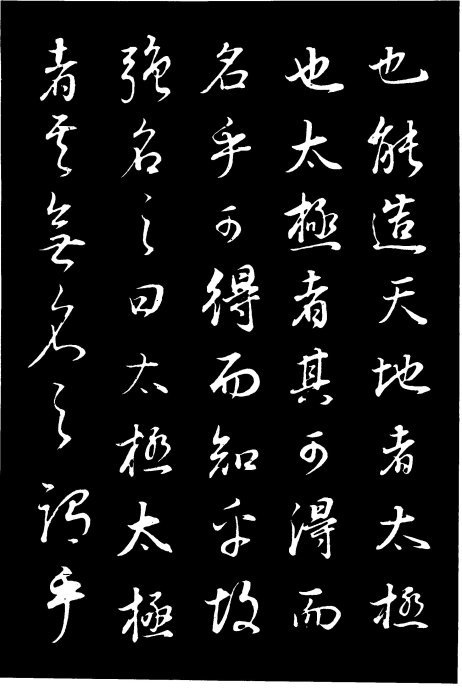 也能造天地者太極
也太極者其可得而
名乎可得而知乎故
強名之曰太極太極
者其無名之謂乎